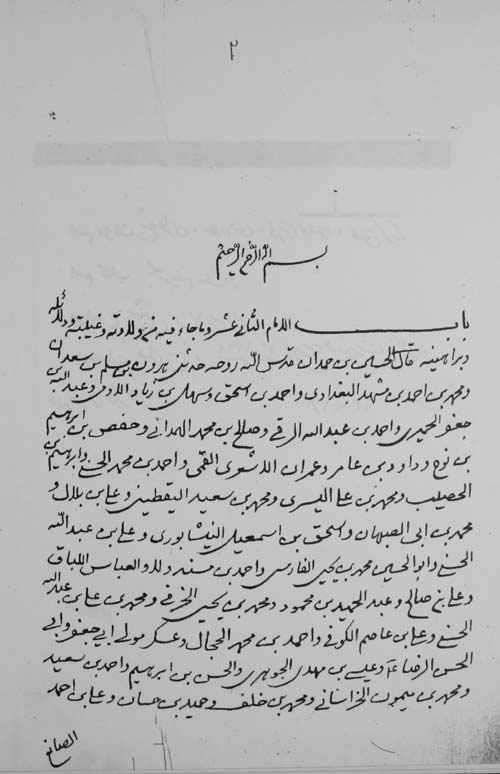 ٢
بسم الله الرحمن الرحيم
باب الامام الثاني عشر وما جاء فيه من ولادته وغيبته ودلائله
وبراهينه قال الحسين بن حمدان قدس الله روحه حدثني هرون بن مسلم بن سعدان
ومحمد بن احمد البغدادي واحمد بن اسحق وسهل بن زياد الادمي وعبد الله بن
جعفر الحميري واحمد بن عبد الله الرقي وصالح بن محمد الهمداني وحفص بن ابرهيم
بن نوح وداود بن عامر وعمران الاشعري القمي واحمد بن محمد الحسني وابرهيم بن
الخصيب ومحمد بن علي اليسري ومحمد بن سعيد اليقطيني وعلي بن بلال و
محمد بن ابي الصبهان واسحق بن اسمعيل النيشابوري وعلي بن عبد الله
الحسني وابو الحسين محمد بن يحيى الفارسي واحمد بن سندولا والعباس اللباق
وعلي بن صالح وعبد الحميد بن محمود ومحمد بن يحيى الخرقي ومحمد بن علي بن عبد الله
الحسني وعلي بن عاصم الكوفي واحمد بن محمد الحجال وعسكر مولى ابي جعفر وابي
الحسن الرضا وعيسى بن مهدي الجوهري والحسن بن ابرهيم واحمد بن سعيد
ومحمد بن ميمون الخراساني ومحمد بن خلف وحميد بن حسان وعلي بن احمد
الصائغ